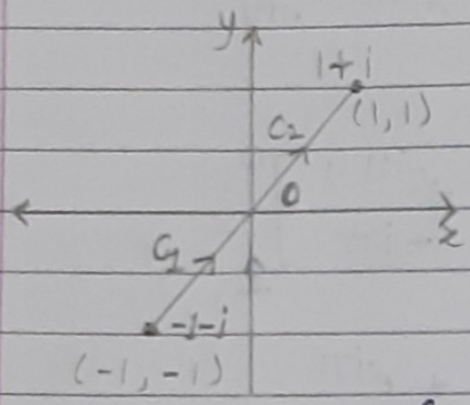 y
1+i
(1,1)
C2
0
x
C1
-1-i
(-1,-1)